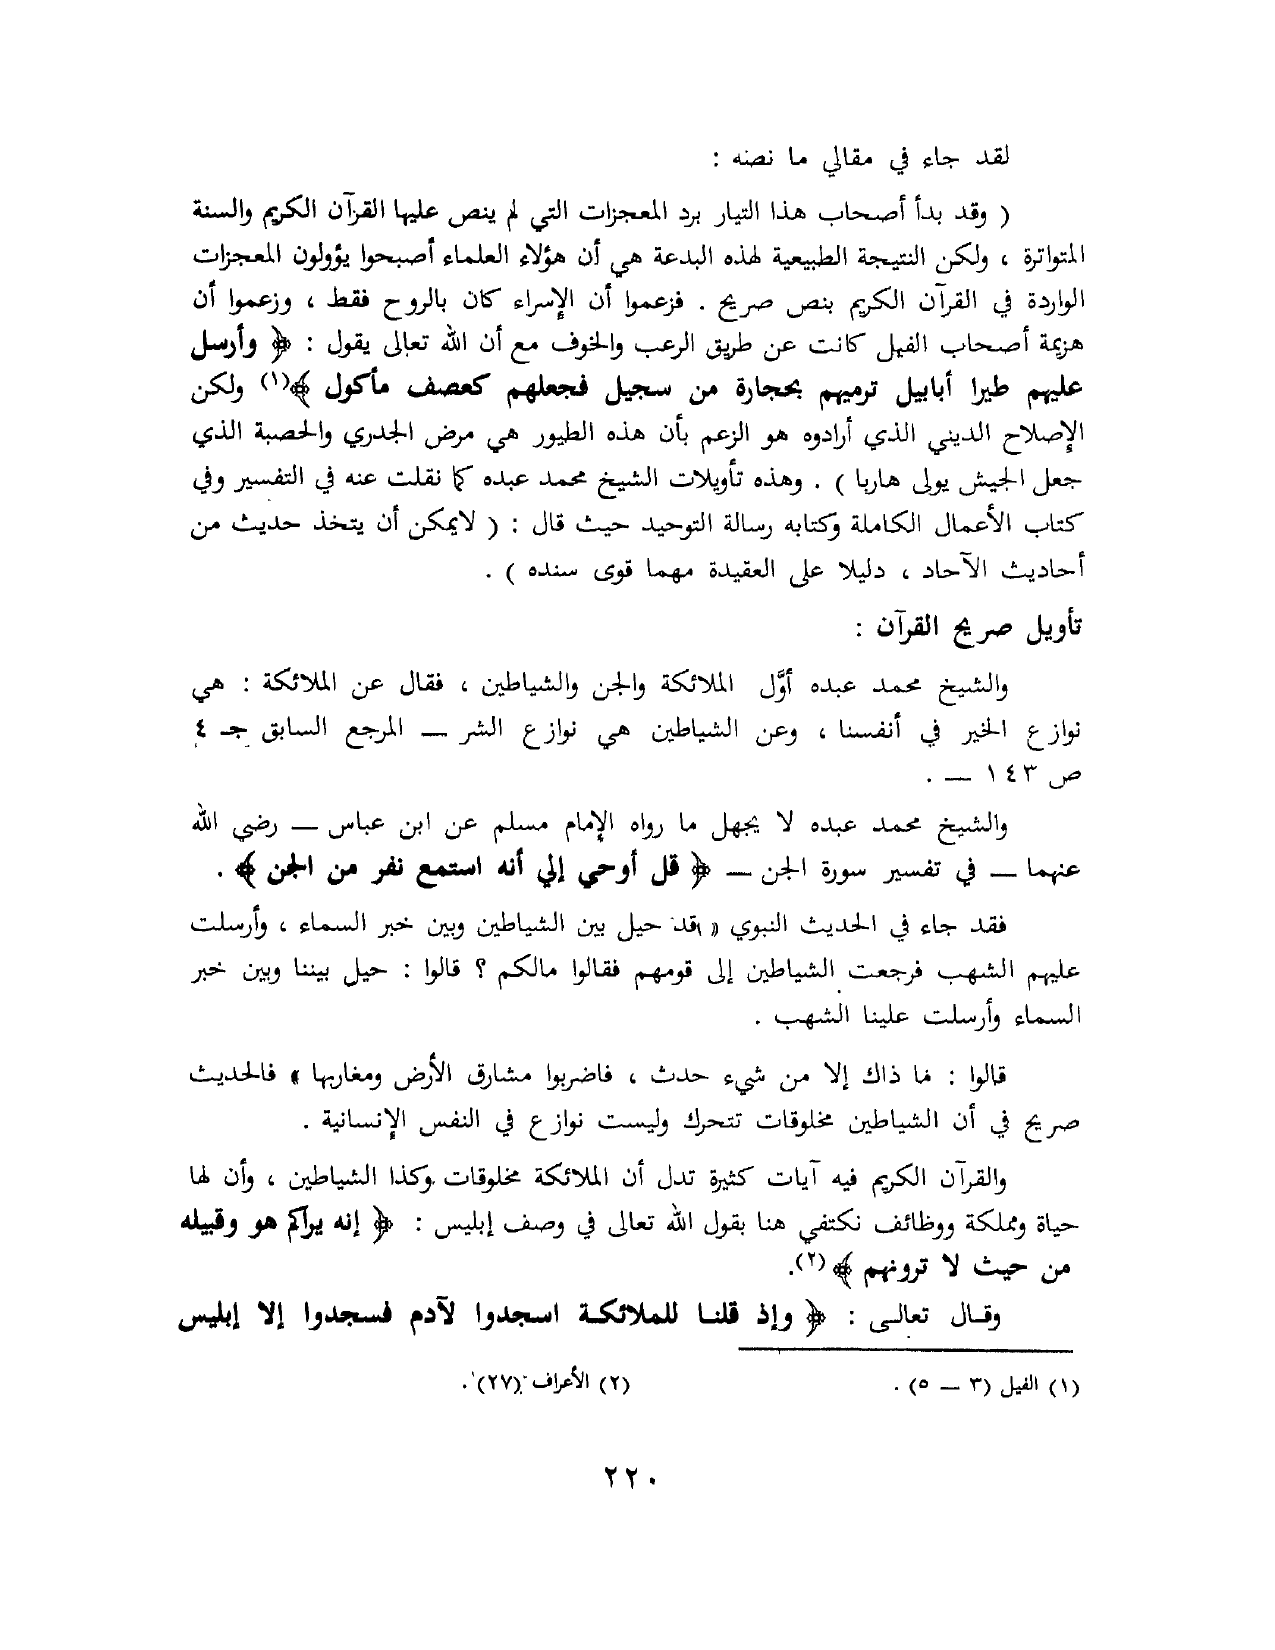 لقد جاء في مقالي ما نصه :
( وقد بدأ أصحاب هذا التيار برد المعجزات التي لم ينص عليها القرآن الكريم والسنة
المتواترة ، ولكن النتيجة الطبيعية لهذه البدعة هي أن هؤلاء العلماء أصبحوا يؤولون المعجزات
الواردة في القرآن الكريم بنص صريح . فزعموا أن الإسراء كان بالروح فقط ، وزعموا أن
هزيمة أصحاب الفيل كانت عن طريق الرعب والخوف مع أن الله تعالى يقول : ﴿ وأرسل
عليهم طيرا أبابيل ترميهم بحجارة من سجيل فجعلهم كعصف مأكول ﴾(١) ولكن
الإصلاح الديني الذي أرادوه هو الزعم بأن هذه الطيور هي مرض الجدري والحصبة الذي
جعل الجيش يولى هاربا ) . وهذه تأويلات الشيخ محمد عبده كما نقلت عنه في التفسير وفي
كتاب الأعمال الكاملة وكتابه رسالة التوحيد حيث قال : ( لايمكن أن يتخذ حديث من
أحاديث الآحاد ، دليلا على العقيدة مهما قوى سنده ) .
تأويل صريح القرآن :
والشيخ محمد عبده أوَّل الملائكة والجن والشياطين ، فقال عن الملائكة : هي
نوازع الخير في أنفسنا ، وعن الشياطين هي نوازع الشر — المرجع السابق جـ ٤
ص ١٤٣ — .
والشيخ محمد عبده لا يجهل ما رواه الإمام مسلم عن ابن عباس — رضي الله
عنهما — في تفسير سورة الجن — ﴿ قل أوحي إلي أنه استمع نفر من الجن ﴾ .
فقد جاء في الحديث النبوي « قد حيل بين الشياطين وبين خبر السماء ، وأرسلت
عليهم الشهب فرجعت الشياطين إلى قومهم فقالوا مالكم ؟ قالوا : حيل بيننا وبين خبر
السماء وأرسلت علينا الشهب .
قالوا : ما ذاك إلا من شيء حدث ، فاضربوا مشارق الأرض ومغاربها » فالحديث
صريح في أن الشياطين مخلوقات تتحرك وليست نوازع في النفس الإنسانية .
والقرآن الكريم فيه آيات كثيرة تدل أن الملائكة مخلوقات وكذا الشياطين ، وأن لها
حياة ومملكة ووظائف نكتفي هنا بقول الله تعالى في وصف إبليس : ﴿ إنه يراكم هو وقبيله
من حيث لا ترونهم ﴾ (٢).
وقال تعالى : ﴿ وإذ قلنا للملائكة اسجدوا لآدم فسجدوا إلا إبليس
(١) الفيل (٣ — ٥) .
(٢) الأعراف (٢٧) .
٢٢٠